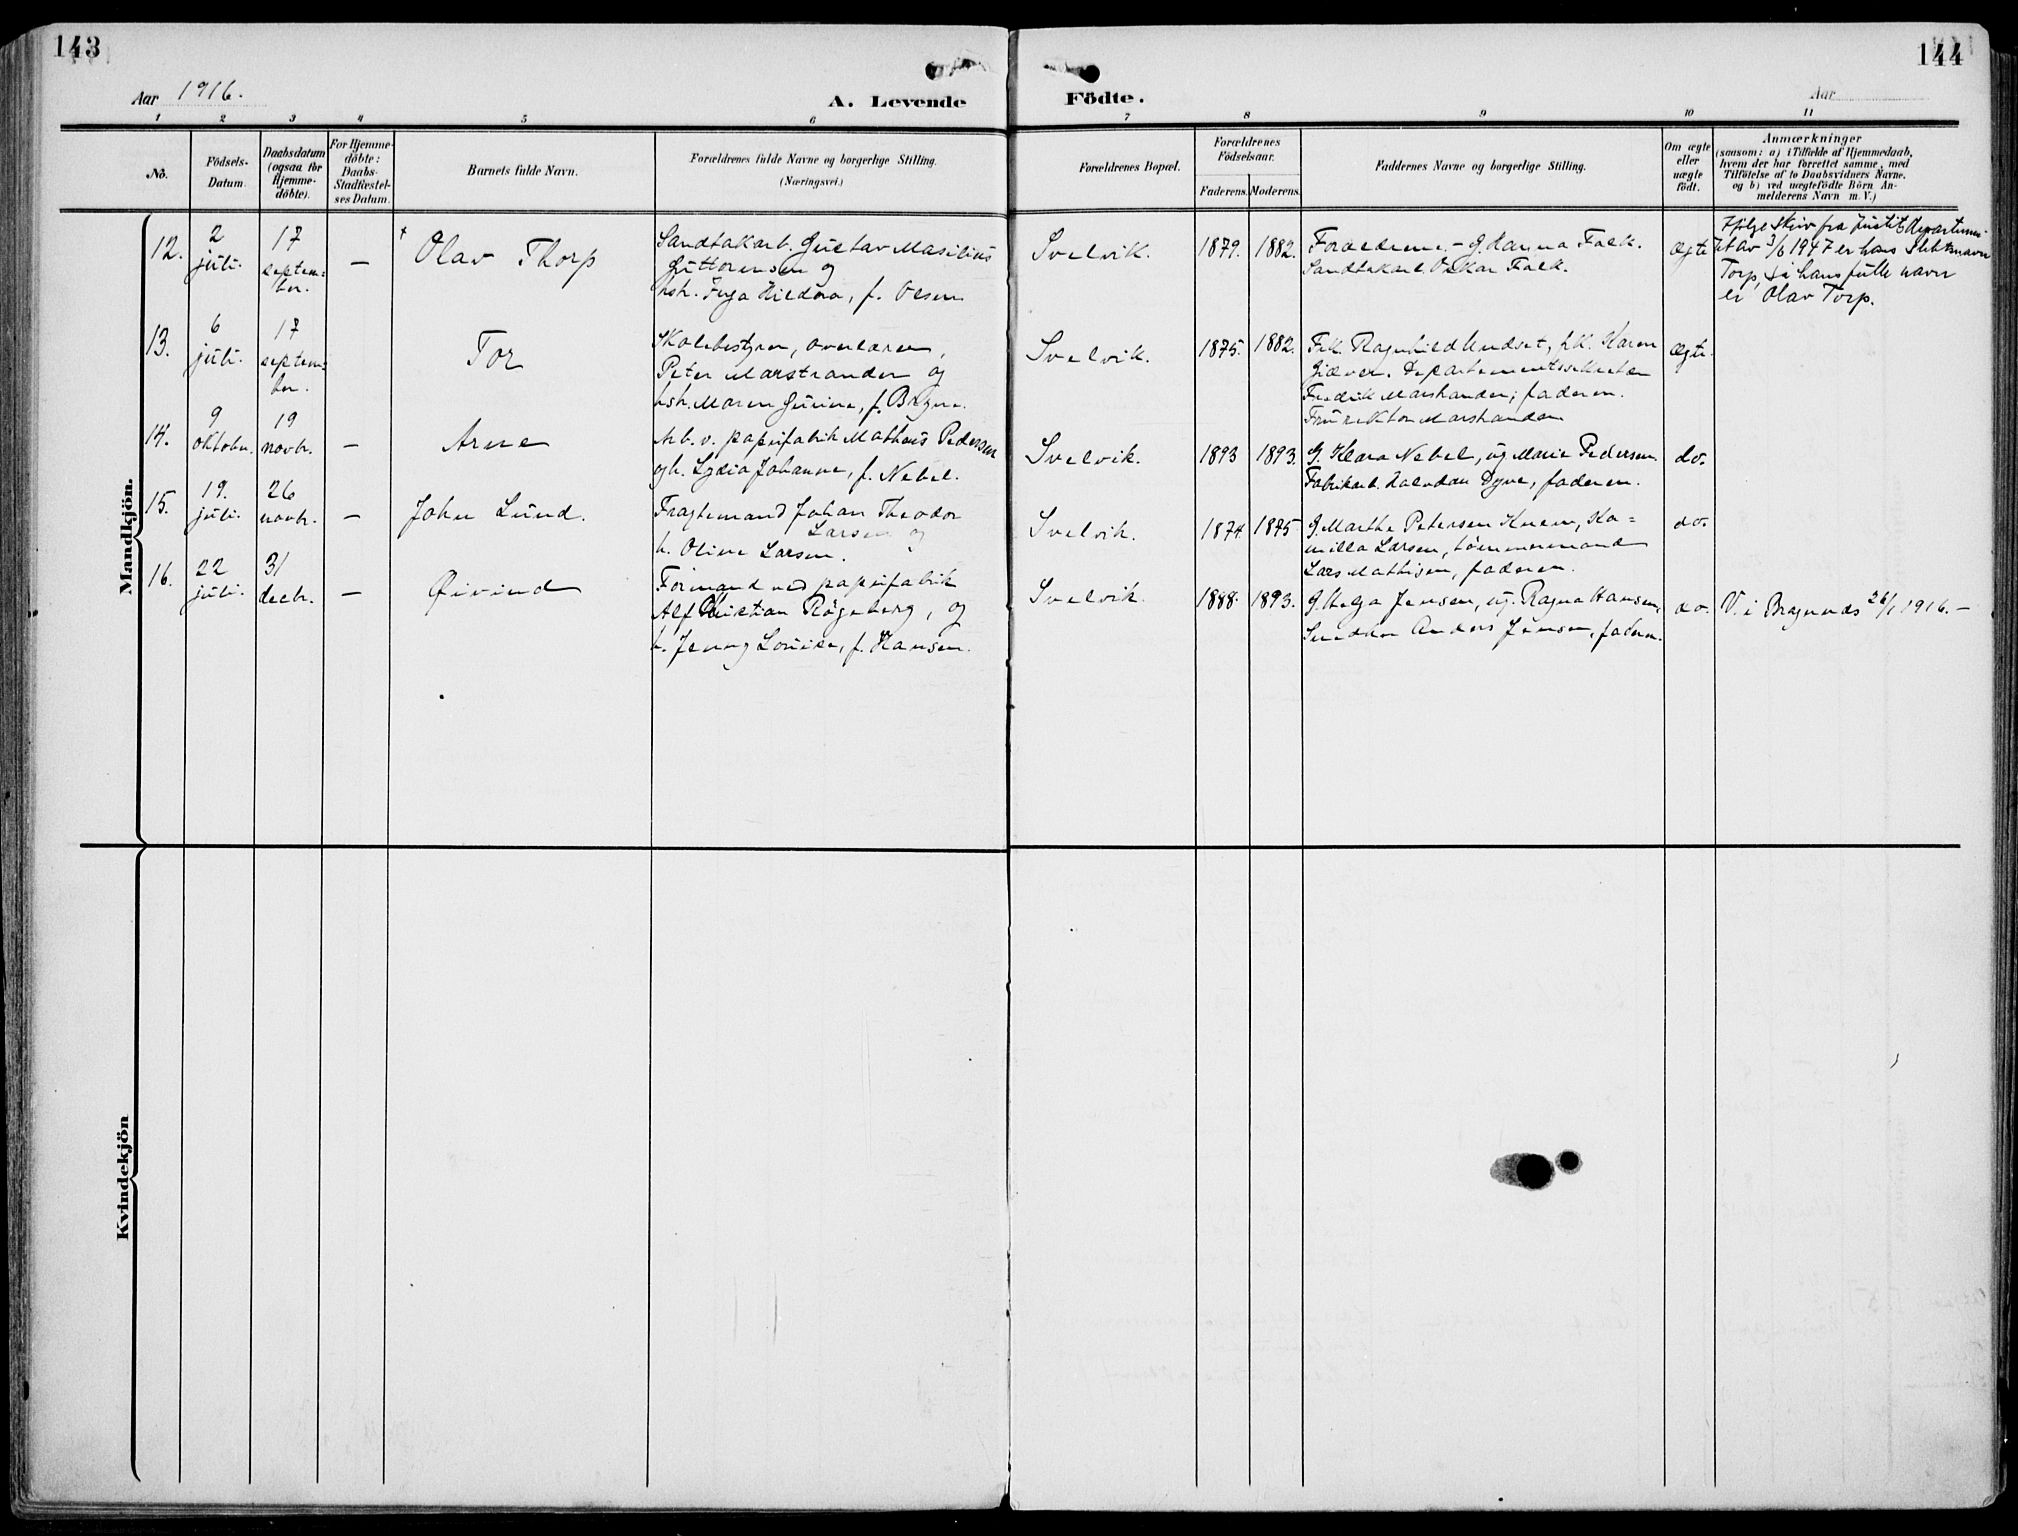 143
144
Aar 1916.
A. Levende
Födte.
Aar
1 2 3 4 5 6 7 8 9 10 11
No.
Födsels-
Datum
Daabsdatum
(ogsaa for
Hjemme-
döbte).
For Hjemme-
döbte:
Daabs-
Stadfæstel-
ses Datum.
Barnets fulde Navn.
Forældrenes fulde Navne og borgerlige Stilling.
(Næringsvei.)
Forældrenes Bopæl.
Forældrenes
Födselsaar.
Faderens. Moderens.
Faddernes Navne og borgerlige Stilling.
Om ægte
eller
uægte
födt.
Anmærkninger
(saasom: a) i Tilfælde af Hjemmedaab,
hvem der har forrettet samme, med
Tilföielse af to Daabsvidners Navne,
og b) ved uægtefödte Börn An-
melderens Navn m. V.)
Mandkjön.
12.
2
juli.
17
septem-
ber.
—
Olav Thorp
Sandtakarb. Gustav Masilius
Guttorensen og
hsh. Inga Hildora, f. Olsen
Svelvik.
1879. 1882.
Forældrene. - G. Hanna Falk.
Sandtakarb. Oskar Falk.
Ægte
Ifølge skriv fra Justitsdepartemen-
tet av 3/6 1947 er hans slektsnavn
Torp, så hans fulle navn
er Olav Torp.
13.
6
juli.
17
septem-
ber.
Tor
Skolebestyrer, overlærer,
Peter Marstrander og
hsh. Maren Gurine, f. Brynn.
Svelvik.
1875. 1882.
Frk. Ragnhild Undset, frk. Karen
Giæver. Departementssekretær
Fredrik Marstrander; faderen.
Fru rektor Marstrander
Ægte.
14.
9
oktober.
19
novbr.
—
Arne
Arb. v. papirfabrik Mathæus Pedersen
og h. Lydia Johanne, f. Nebel.
Svelvik.
1893 1893.
G. Klara Nebel, ug. Marie Pedersen.
Fabrikarb. Halvdan Dyve, faderen.
do.
15.
19.
juli.
26
novbr.
—
John Lund.
Fragtemand Johan Theodor
Larsen og
h. Oline Larsen.
Svelvik.
1874 1875
G. Marthe Petersen Knem, Ka-
milla Larsen, tömmermand
Lars Mathisen, faderen.
do.
16.
22
juli.
31
decbr.
—
Øivind
Formand ved papirfabrik
Alf Christian Røgeberg, og
h. Jenny Louise, f. Hansen.
Svelvik.
1888. 1893.
G. Helga Jensen, ug. Ragna Hansen,
Snedker Anders Jensen, faderen.
do.
V. i Bragernæs 26/1 1916. -
Kvindekjön